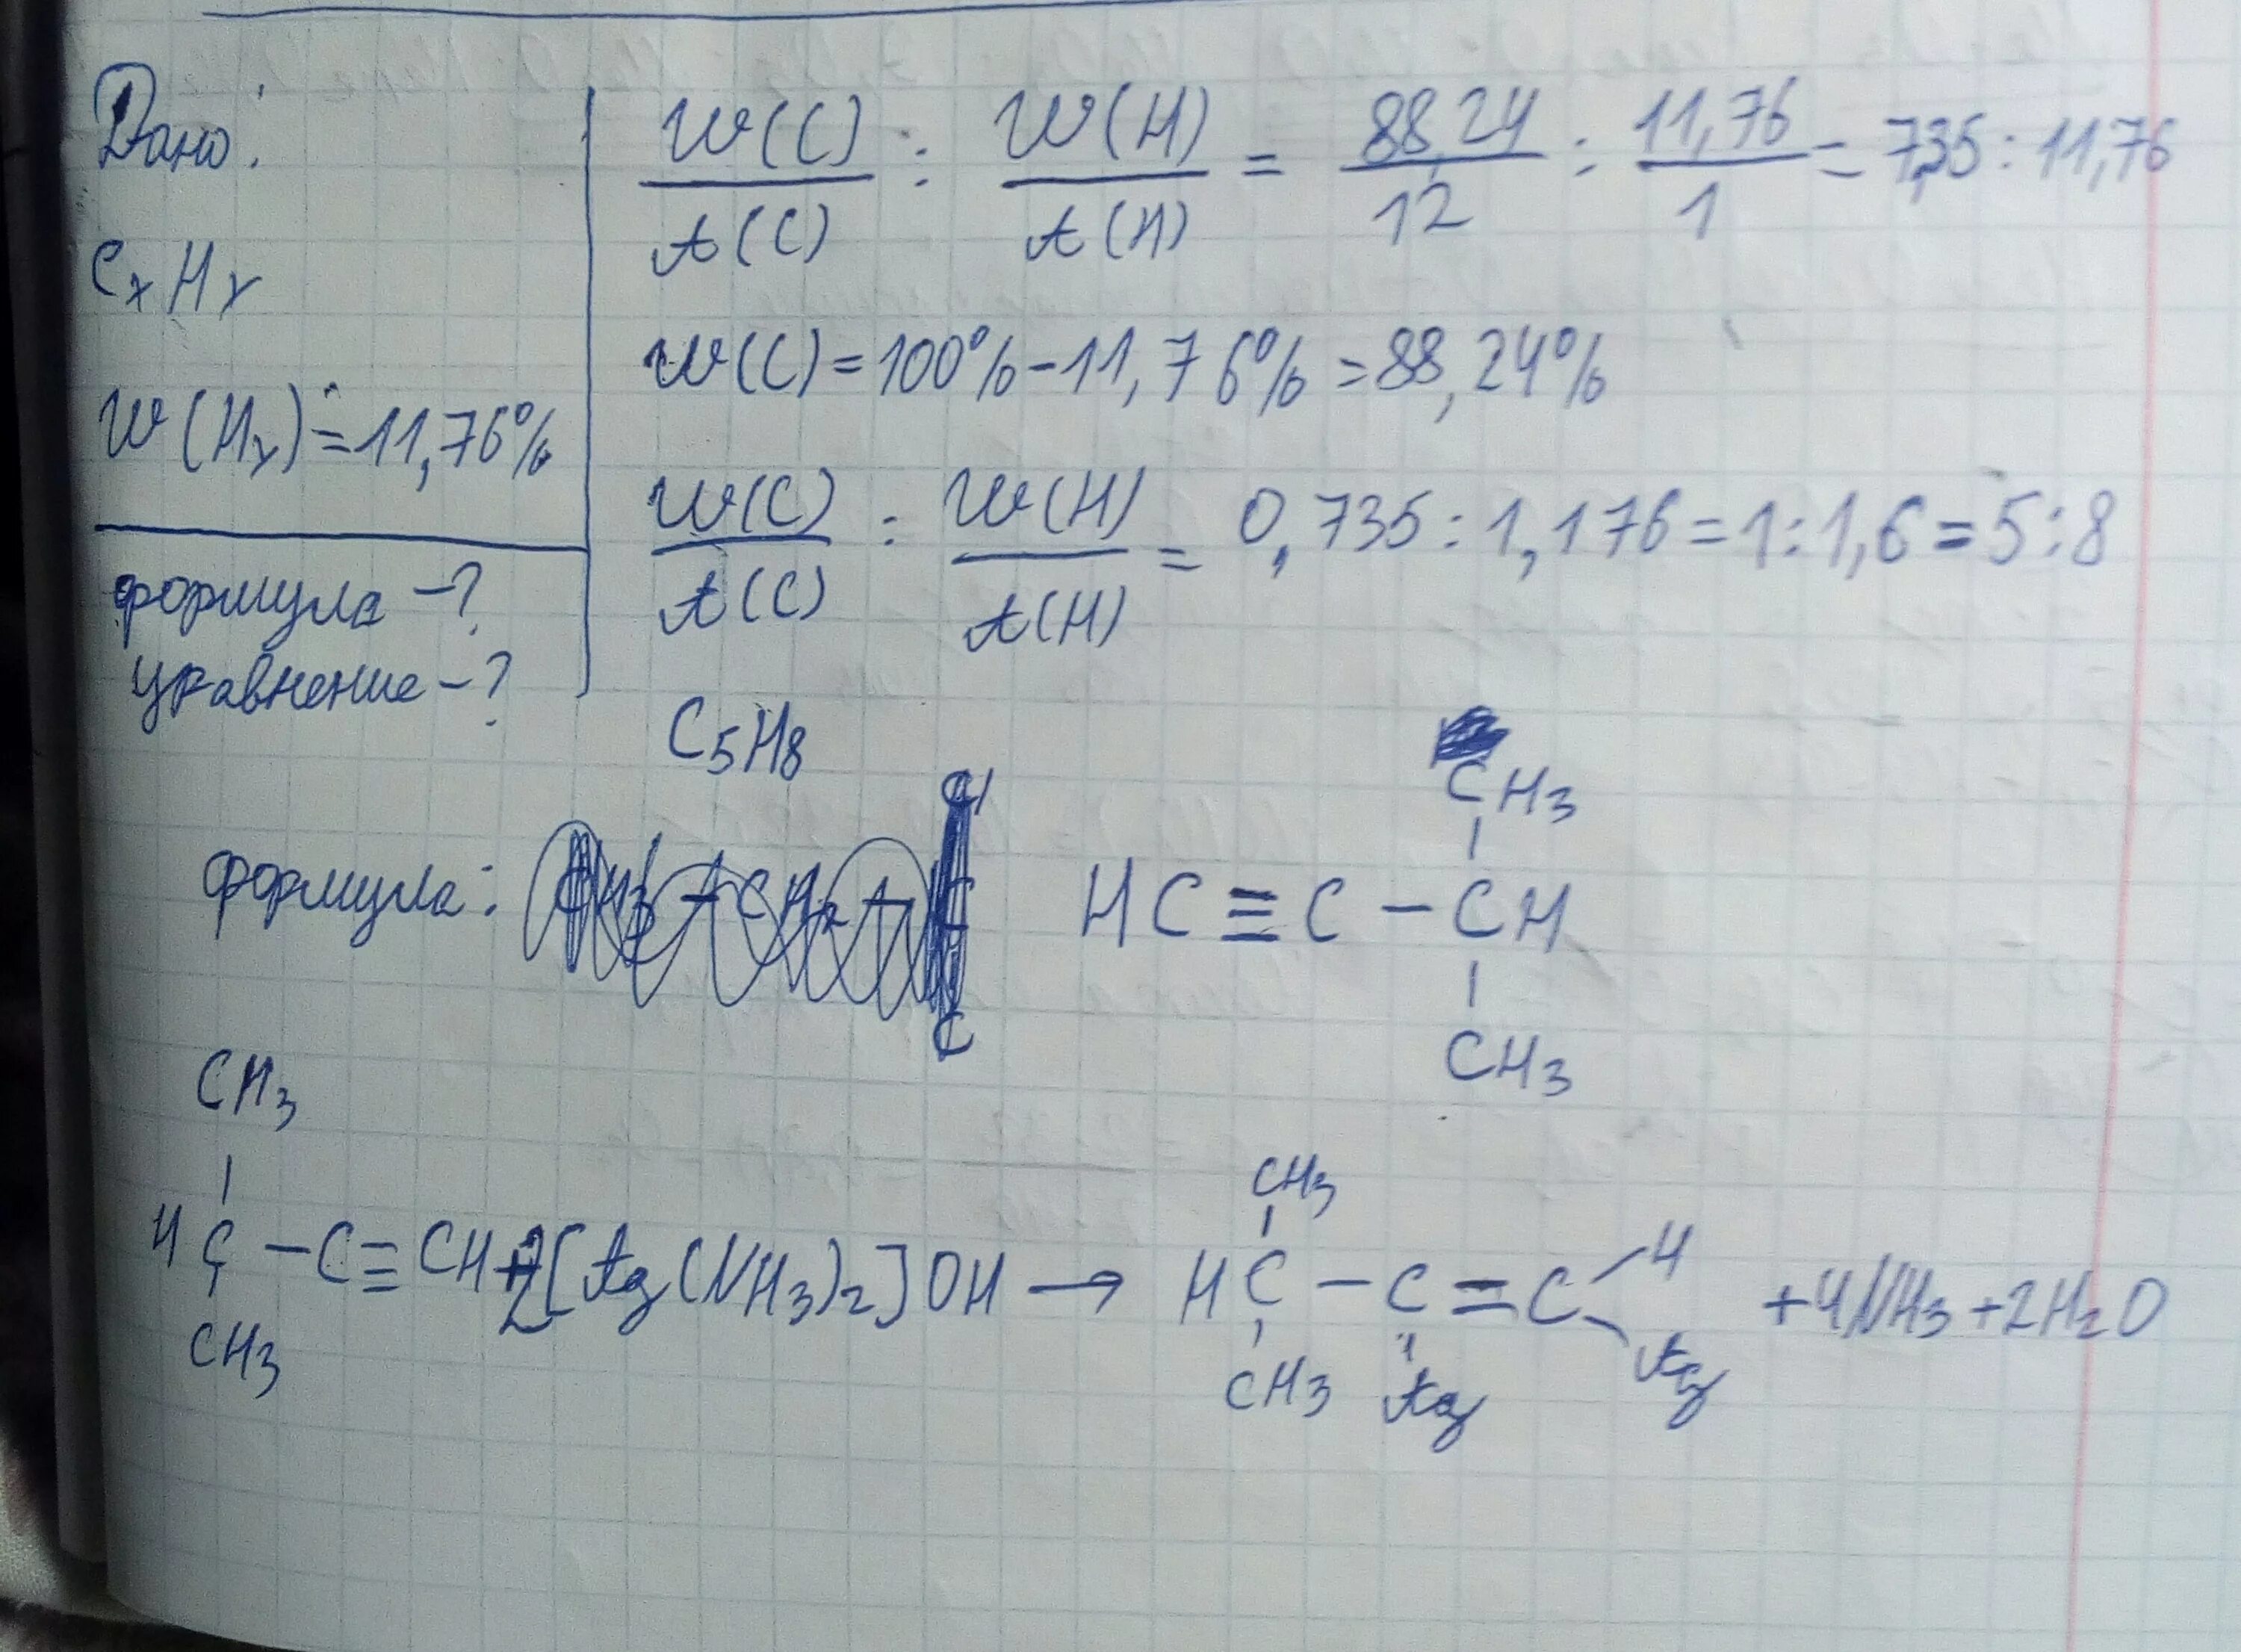 Дано:
CxHy
W(Hy)=11,76%
формула-?
уравнение-?
W(C)/A(C) : W(H)/A(H) = 88,24/12 : 11,76/1 = 7,35 : 11,76
W(C)=100%-11,76%=88,24%
W(C)/A(C) : W(H)/A(H) = 0,735:1,176=1:1,6=5:8
C5H8
формула:
CH3
HC≡C-CH
CH3
CH3
HC-C≡CH+2[Ag(NH3)2]OH→
CH3
CH3
HC-C=C H +4NH3+2H2O
CH3 Ag Ag